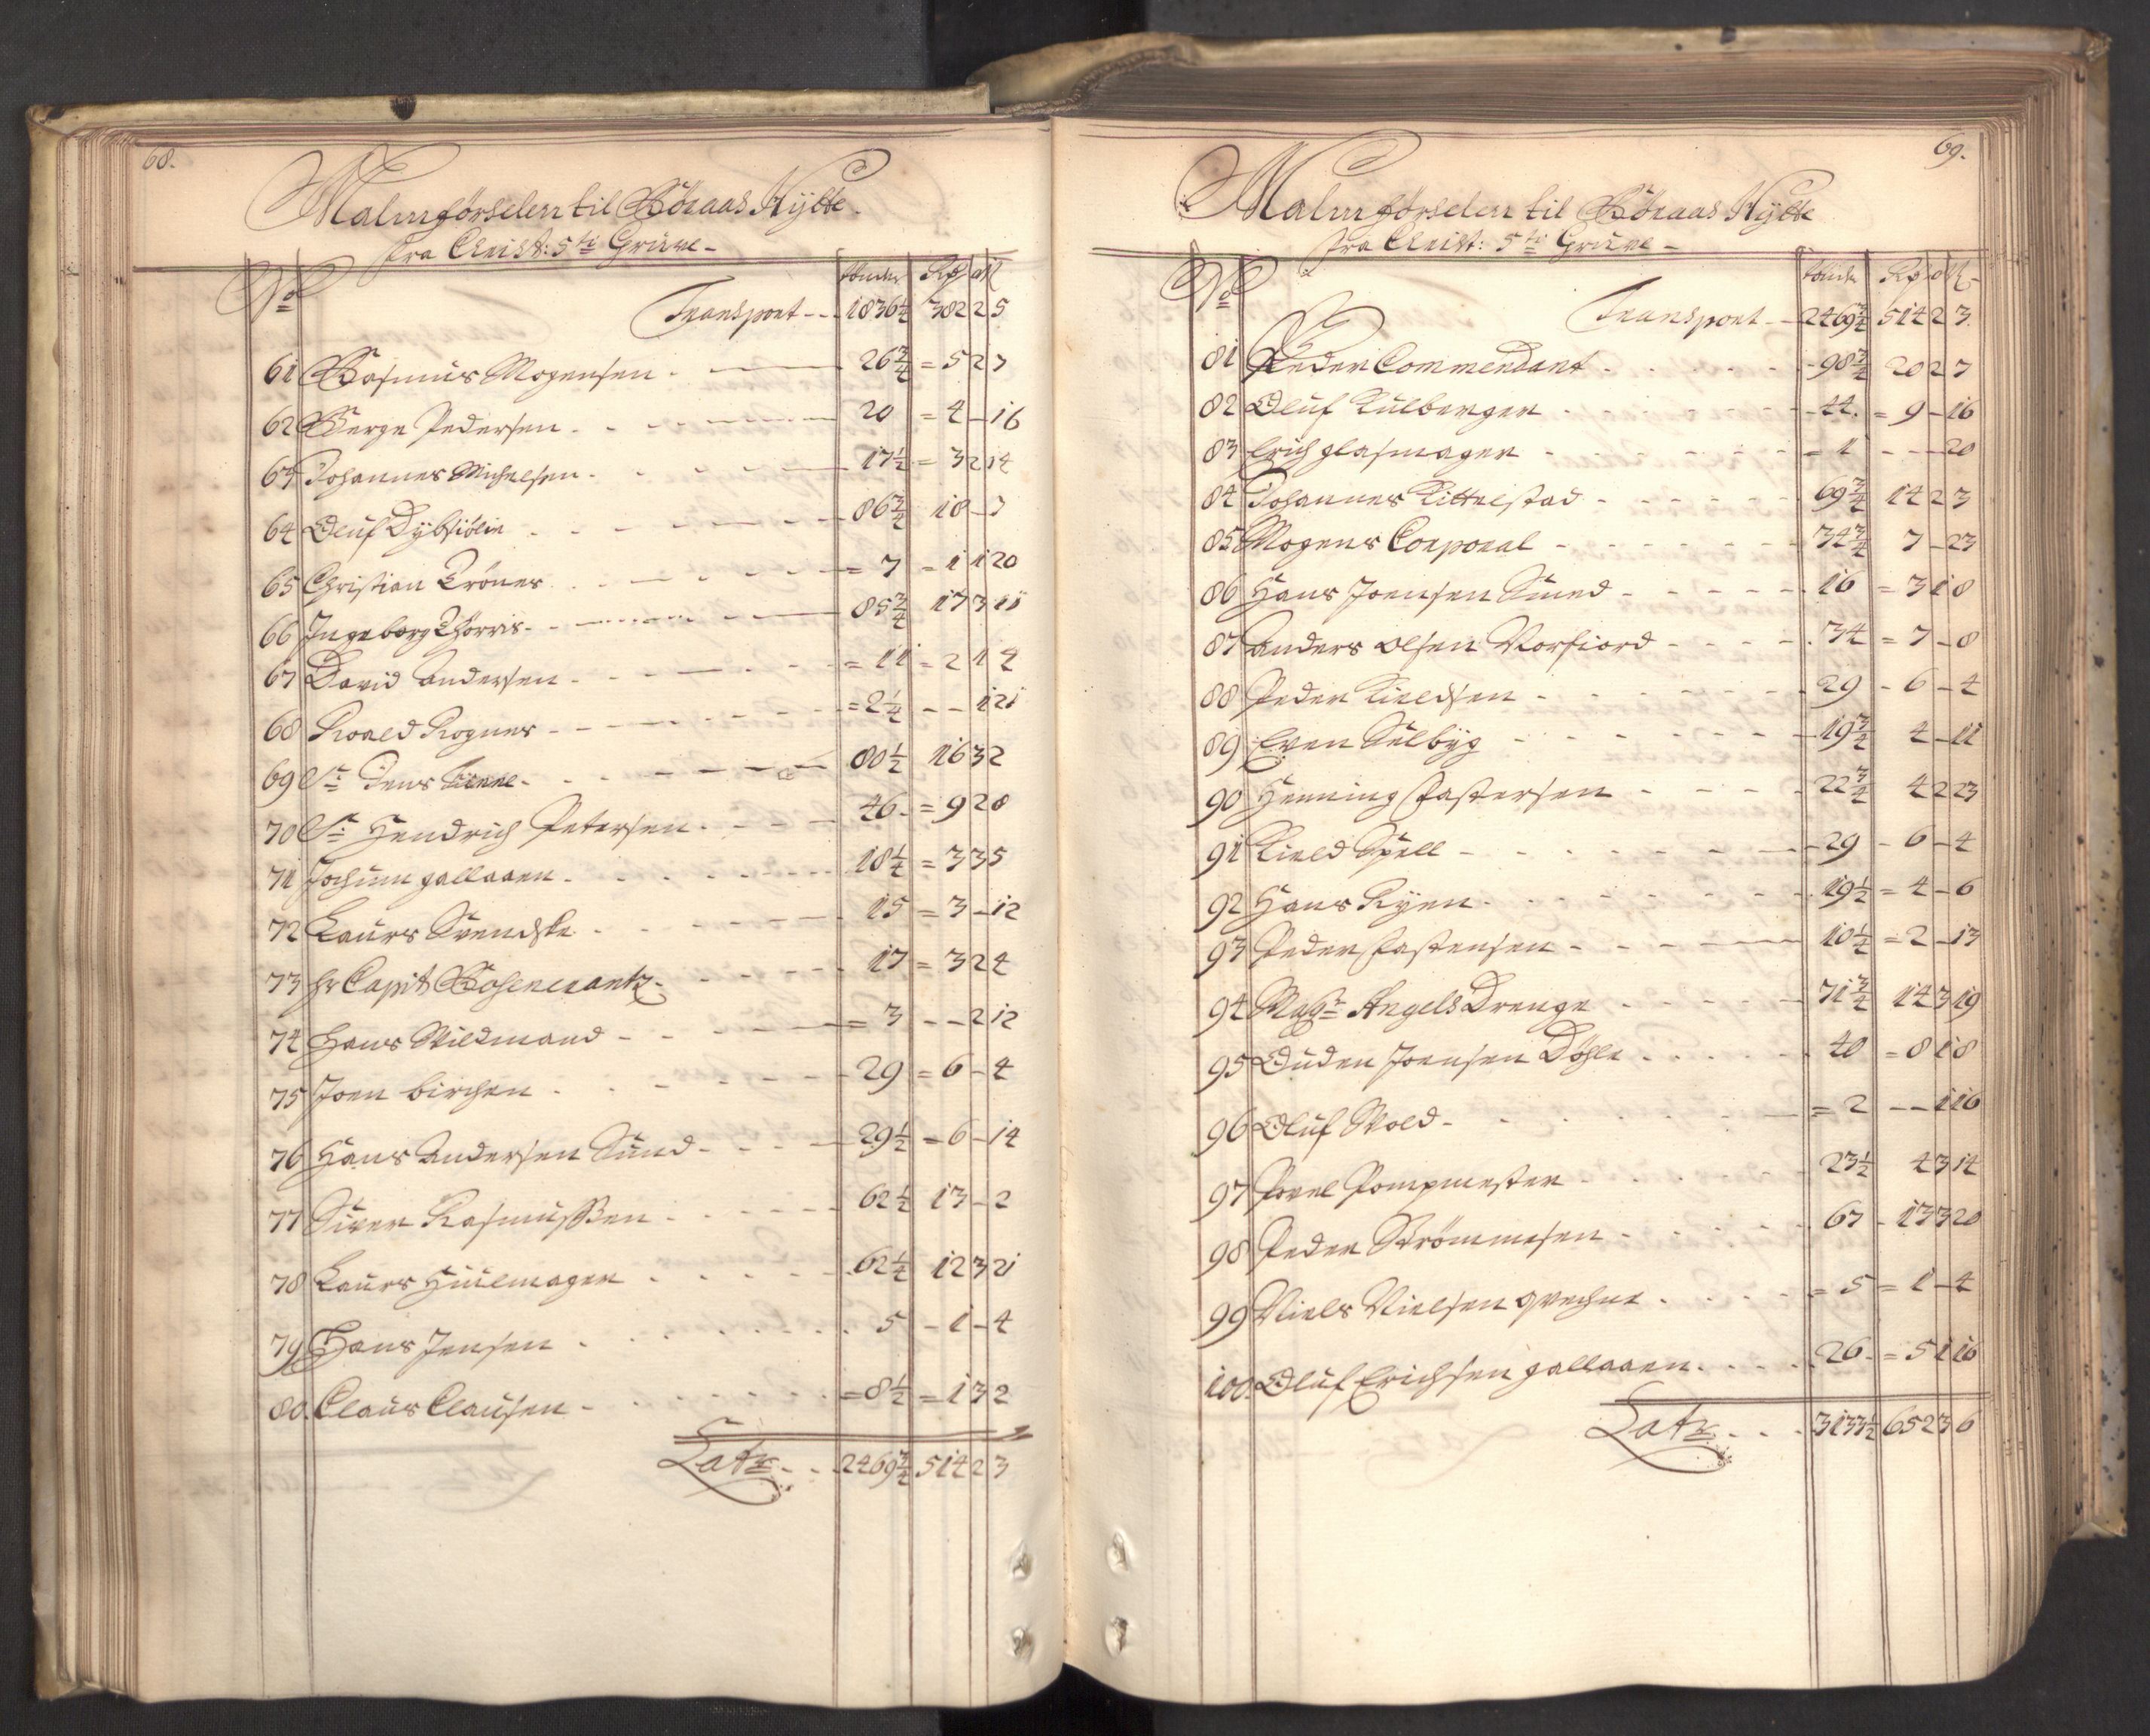 68.
Malmförselen til Röraas Hÿtte.
fra Christ: 5ti Gruve
No
tönder Rdr ort ß
Transport 1836¼ 382 2 5
61 Rasmus Mogensen 26¾ = 5 2 7
62 Berge Pedersen 20 = 4 - 16
63 Johannes Michelsen 17½ = 3 2 14
64 Oluf Dybsiölin 86¾ 18 - 7
65 Christian Trönes = 7 = 1 1 20
66 Ingeborg Thorris 85¾ 17 3 11
67 David Andersen = 11 = 2 1 4
68 Roald Rognes = 2¼ - - 1 21
69 Sr. Jens 80½ 16 3 2
70 Sr. Hendrich Petersen 46 = 9 2 8
71 Jochum gallaaen 18¼ = 3 3 5
72 Laurs Svendske 15 = 3 - 12
73 hr Capit Rosencrantz 17 = 3 2 4
74 Hans Wildmand = 3 - - 2 12
75 Joen birchen 29 = 6 - 4
76 Hans Andersen Sund 29½ = 6 - 14
77 Siver Rasmussen 62½ 13 - 2
78 Laurs Hiulmager 62¼ 12 3 21
79 Hans Jensen 5 - 1 - 4
80. Claus Clausen = 8½ = 1 3 2
Latr 2469¾ 514 2 3
69.
Malmförselen til Röraas Hÿtte
fra Christ: 5ti Gruve
No
tönder Rdr ort ß
Transport 2469¾ 514 2 3
81 Peder Commendant 98¾ 20 2 7
82 Oluf Kulberger 44. = 9 - 16
83 Erich glasmager = 1 - - - 20
84 Johannes Kittelstad 69¾ 14 2 3
85 Mogens Corporal 34¾ 7 - 23
86 Hans Joensen Smed 16 = 3 1 8
87 Anders Olsen Vorfiord 34 = 7 - 8
88 Peder Kieldsen 29 - 6 - 4
89 Even Sülbÿg 19¾ 4 - 11
90 Henning Castersen 22¾ 4 2 23
91 Kield Spell 29 - 6 - 4
92 Hans Ryen 19½ = 4 - 6
93 Peder Castensen 10¼ = 2 - 13
94 Magr Angels Drenge 71¾ 14 3 19
95 Ouden Joensen Döhle 40 = 8 1 8
96 Oluf Wold = 2 - - 1 16
97 Povel Pompmester 23½ 4 3 14
98 Peder Strömmesen 67 - 13 3 20
99 Niels Nielsen qvechne = 5 = 1 - 4
100. Oluf Erichsen gallaaen 26. = 5 1 16
Latr 3133½ 652 3 6